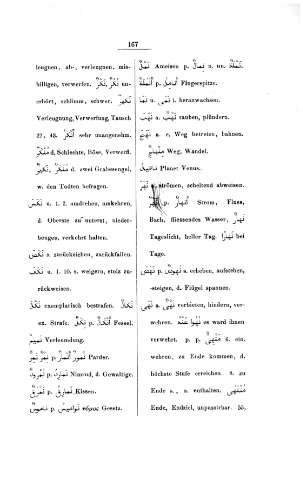 167
leugnen, ab-, verleugnen, mis-
billigen, verwerfen. نُكْرٌ, نُكُرٌ un-
erhört, schlimm, schwer. نَكِيرٌ
Verleugnung, Verwerfung, Tausch
22, 43. أَنْكَرُ sehr unangenehm.
مُنْكَرٌ d. Schlechte, Böse, Verwerfl.
نَكِيرٌ, مُنْكَرٌ d. zwei Grabesengel,
w. den Todten befragen.
نَكَسَ u. 1. 2. umdrehen, umkehren,
d. Oberste zu unterst, nieder-
beugen, verkehrt halten.
نَكَصَ s. zurückziehen, zurückfallen.
نَكَفَ u. 1. 10. s. weigern, stolz zu-
rückweisen.
نَكَلَ exemplarisch bestrafen. نَكَالٌ
ex. Strafe. نِكْلٌ p. أَنْكَالٌ Fessel.
نَمِيمٌ Verleumdung.
نَمِرٌ p. Parder.
نُمْرُودُ p. Nimrod, d. Gewaltige.
نُمْرُقٌ p. نَمَارِقُ Kissen.
نَامُوسٌ p. نَوَامِيسُ νόμος Gesetz.
نَمْلٌ Ameisen p. نِمَالٌ n. un. نَمْلَةٌ.
أَنْمُلَةٌ p. أَنَامِلُ Fingerspitze.
نَمَا u. i. heranwachsen.
نَهَبَ u. rauben, plündern.
نَهَجَ a. e. Weg betreten, bahnen.
مِنْهَاجٌ Weg, Wandel.
Planet Venus.
strömen, scheltend abweisen.
p. أَنْهَارٌ Strom, Fluss,
Bach, fliessendes Wasser, نَهَارٌ
Tageslicht, heller Tag. نَهَارًا bei
Tage.
نَهَضَ p. نُهُوضٌ s. erheben, aufstehen,
-steigen, d. Flügel spannen.
نَهَى نَهْيٌ verbieten, hindern, ver-
wehren. نُهُوا عَنْهُ es ward ihnen
verwehrt. p. p. مَنْهِيٌّ 6. ein.
wehren, zu Ende kommen, d.
höchste Stufe erreichen. z. zu
Ende s., s. enthalten. مُنْتَهَى
Ende, Endziel, unpassirbar. 55,